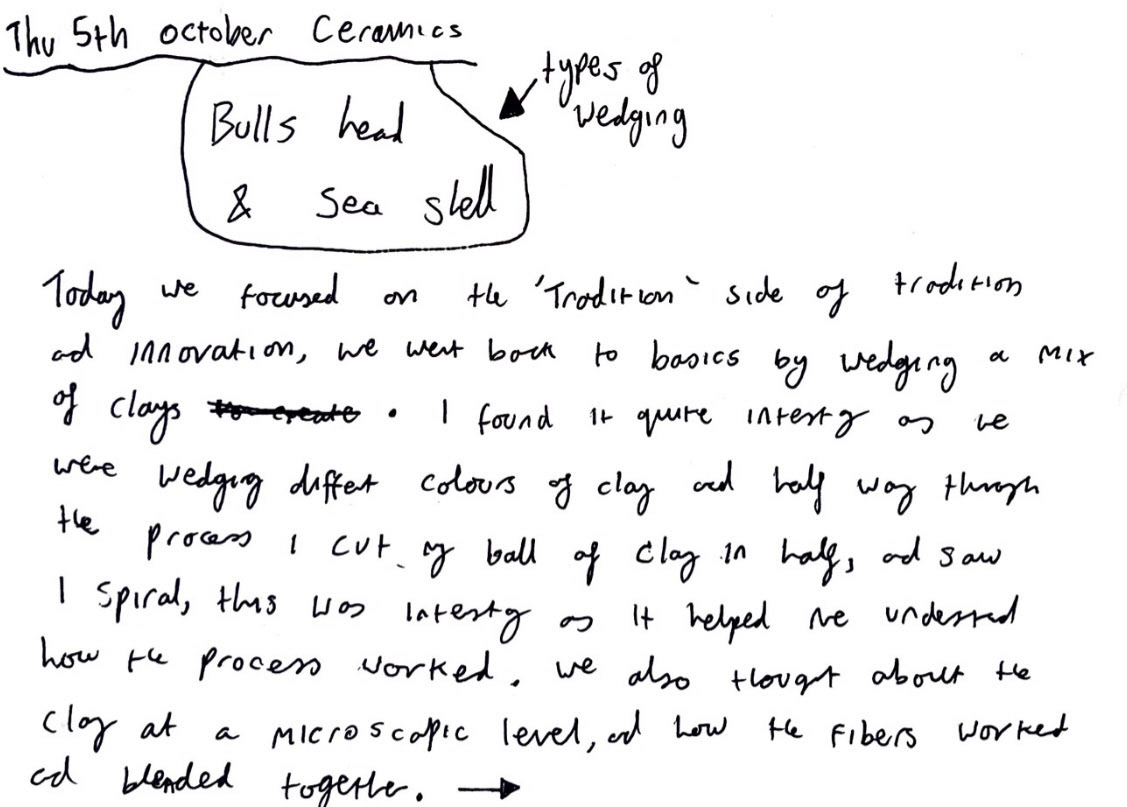 Thu 5th october Ceramics
types of
wedging
Bulls head
& Sea shell
Today we focused on the 'Tradition' side of tradition
and innovation, we went back to basics by wedging a mix
of clays to create . I found it quite interestg as we
were wedging differet colours of clay and half way through
the process I cut my ball of clay in half, and saw
1 spiral, this was interestg as it helped me understad
how the process worked. we also thougt about the
clay at a microscopic level, and how the fibers worked
and blended together. →